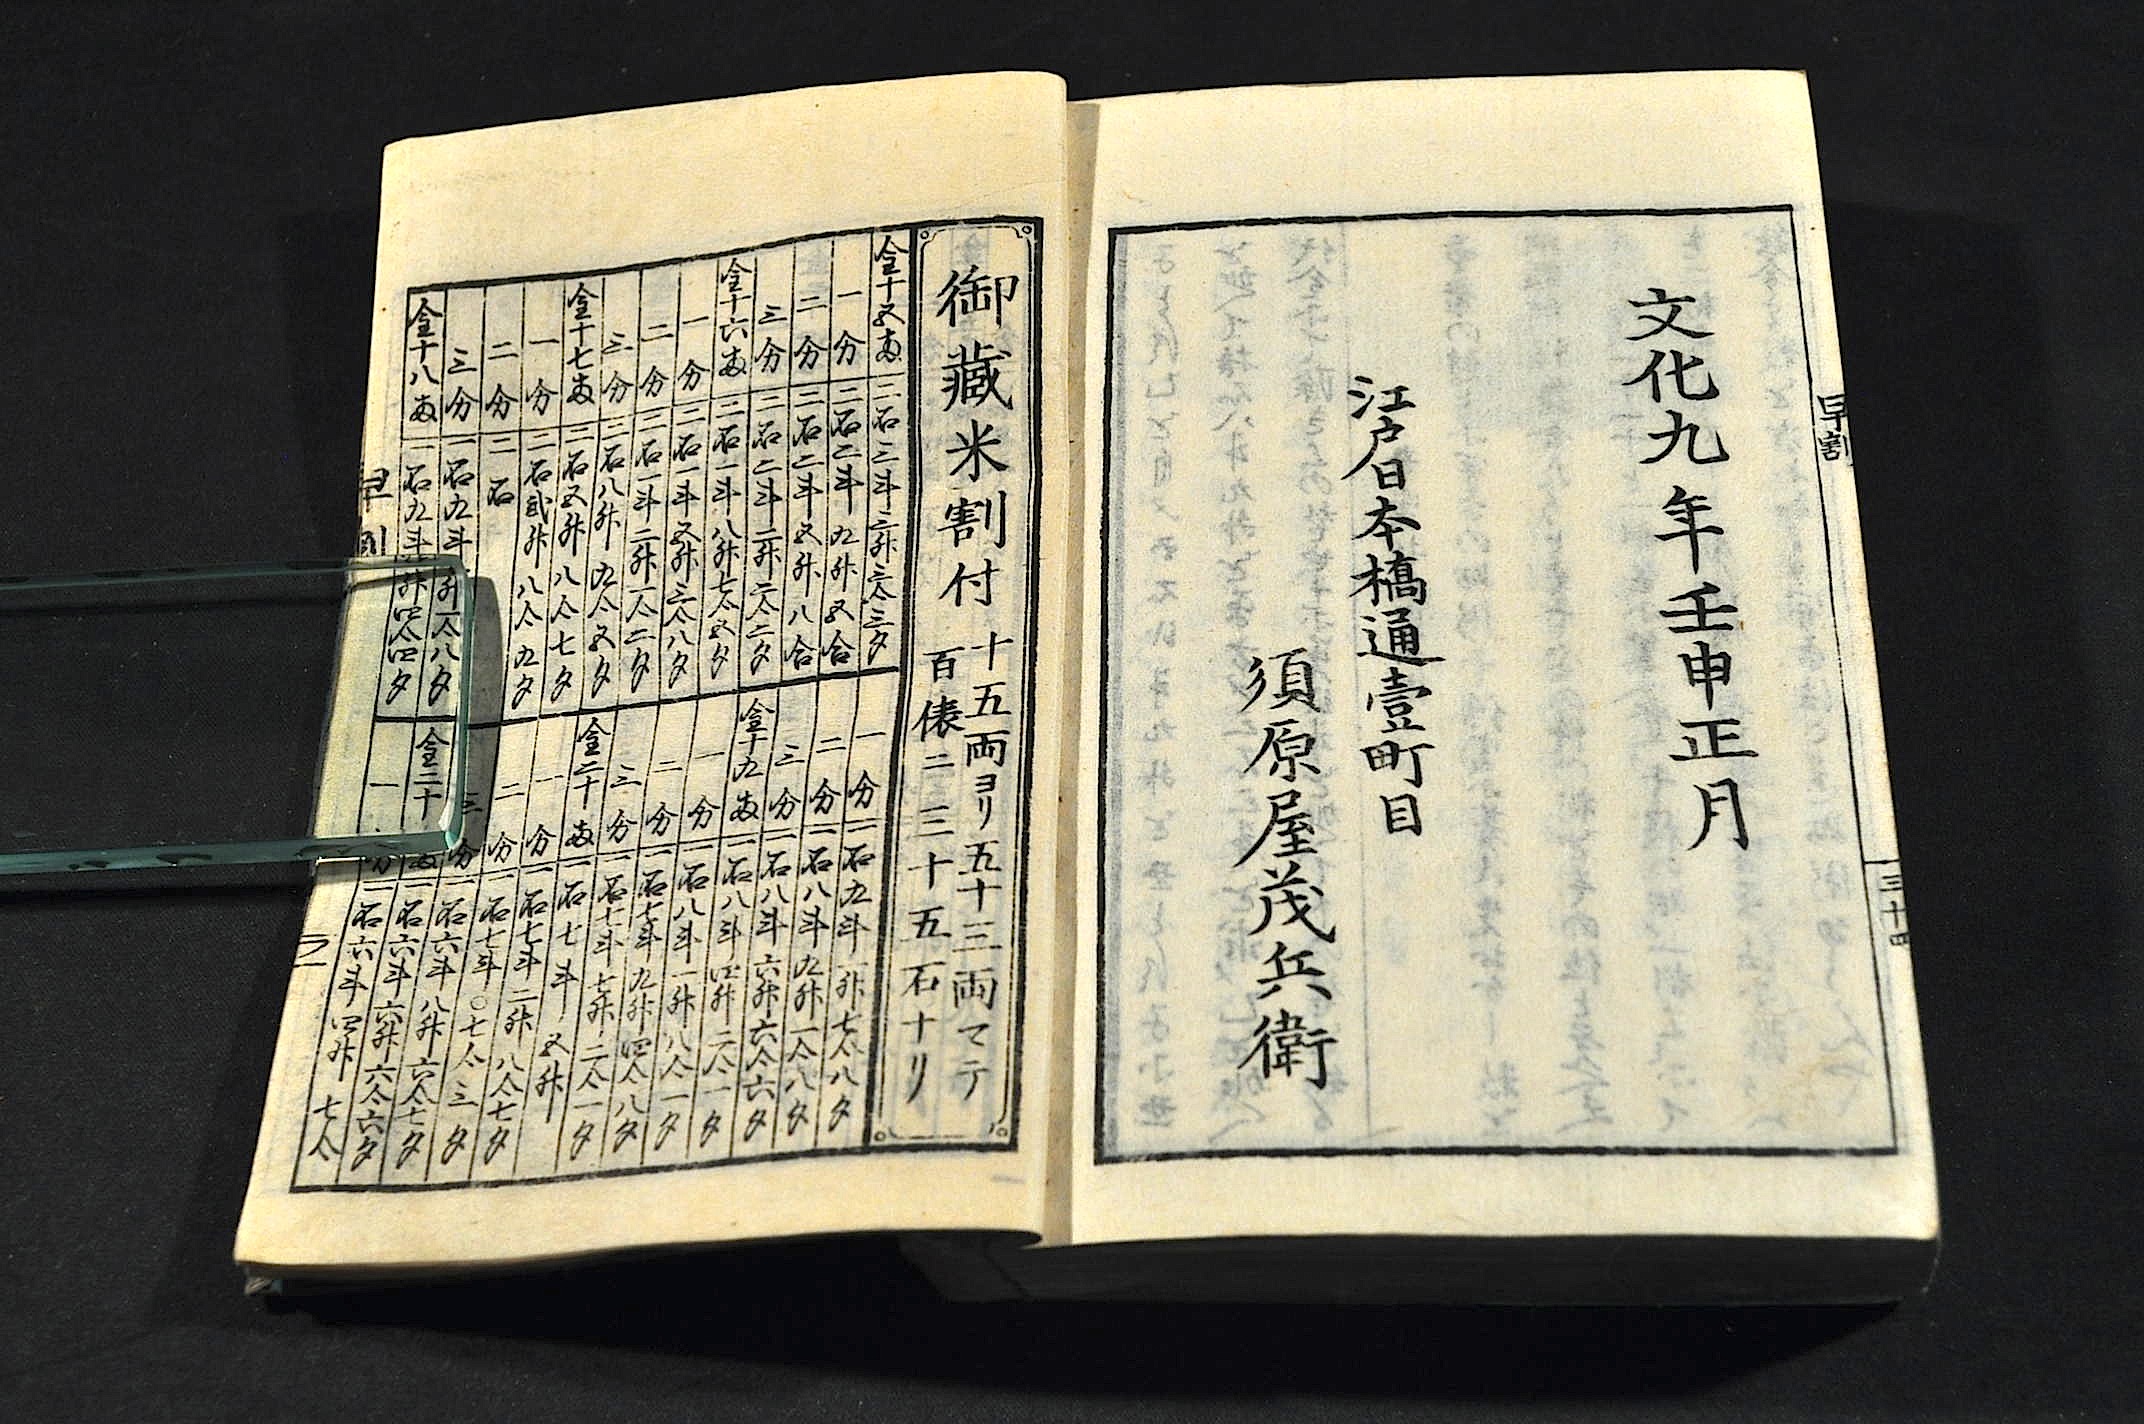 早割
三十四
文化九年壬申正月
江戸日本橋通壹町目
須原屋茂兵衛
御藏米割付
十五両ヨリ五十三両マテ
百俵ニ三十五石ナリ
金十五両 二石三斗三升三合三夕
一分 二石二斗九升五合
二分 二石二斗五升八合
三分 二石二斗二升二合二夕
金十六両 二石一斗八升七合五夕
一分 二石一斗五升三合八夕
二分 二石一斗二升一合二夕
三分 二石八升九合五夕
金十七両 二石五升八合七夕
一分 二石貳升八合九夕
二分 二石
三分 一石九斗 升一合八夕
金十八両 一石九斗 升四合四夕
一分 一石九斗一升七合八夕
二分 一石八斗九升一合八夕
三分 一石八斗六升六合六夕
金十九両 一石八斗四升二合一夕
一分 一石八斗一升八合一夕
二分 一石七斗九升四合八夕
三分 一石七斗七升二合一夕
金二十両 一石七斗五升
一分 一石七斗二升八合七夕
二分 一石七斗〇七合三夕
三分 一石六斗八升六合七夕
金二十 両 一石六斗六升六合六夕
一分 一石六斗四升七合